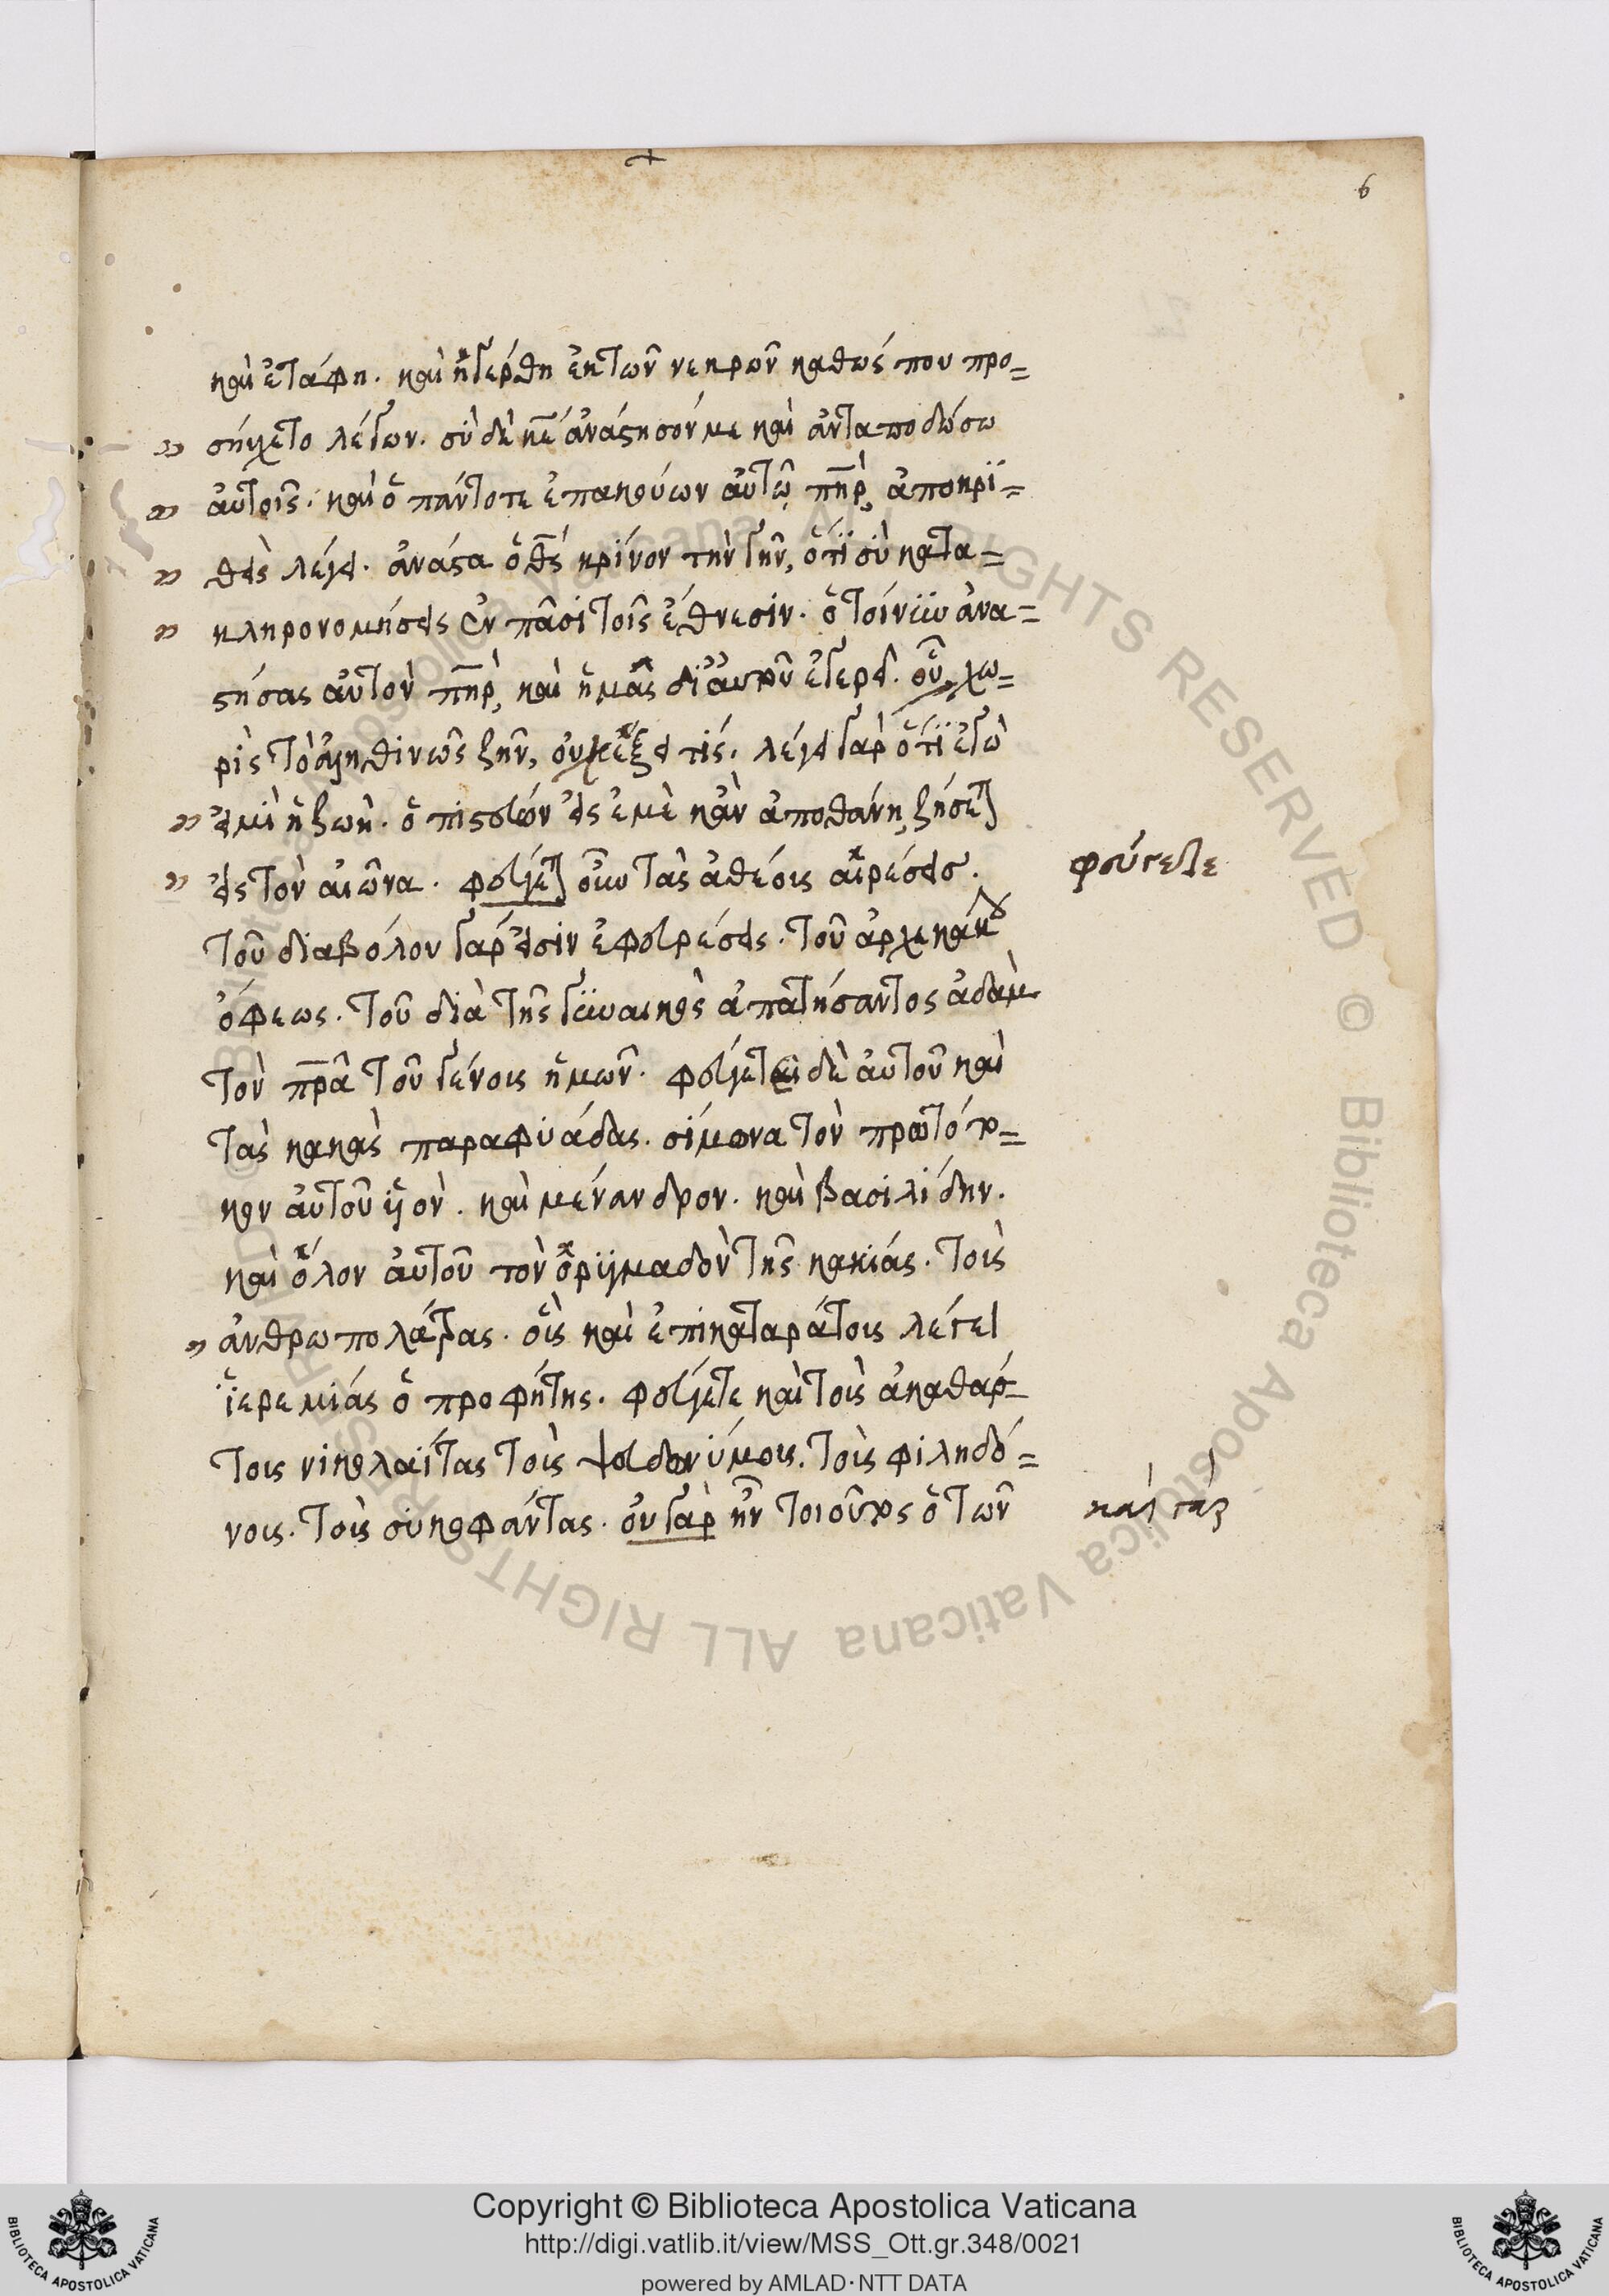 6
καὶ ἐτάφη. καὶ ἠγέρθη ἐκ τῶν νεκρῶν καθώς που προ=
σηύχετο λέγων. σὺ δὲ κε ἀνάστησόν με καὶ ἀνταποδώσω
αὐτοῖς. καὶ ὁ πάντοτε ἐπακούων αὐτῶ πηρ, ἀποκρι=
θεὶς λέγει. ἀνάστα ὁ θς κρίνον τὴν γῆν, ὅτι σὺ κατα=
κληρονομήσεις ἐν πᾶσι τοῖς ἔθνεσιν. ὁ τοίνυν ἀνα=
στήσας αὐτὸν πηρ, καὶ ἡμᾶς δι' αὐτοῦ ἐγερεῖ. οὗ χω=
ρὶς τὸ ἀληθινῶς ζῆν, οὐχ ἕξει τίς. λέγει γὰρ ὅτι ἐγὼ
εἰμὶ ἡ ζωή. ὁ πιστεύων εἰς ἐμὲ κἂν ἀποθάνη, ζήσεται
εἰς τὸν αἰῶνα. φεύγεται οὖν τὰς ἀθέους αἱρέσεις.
φεύγετε
τοῦ διαβόλου γάρ εἰσιν ἐφευρέσεις. τοῦ ἀρχεκάκου
ὄφεως. τοῦ διὰ τῆς γυναικὸς ἀπατήσαντος ἀδὰμ
τὸν πρα τοῦ γένους ἡμῶν. φεύγεται δὲ αὐτοῦ καὶ
τὰς κακὰς παραφυάδας. σίμωνα τὸν πρωτότο=
κον αὐτοῦ υἱὸν. καὶ μένανδρον. καὶ βασιλίδην.
καὶ ὅλον αὐτοῦ τὸν ὁρυμαδὸν τῆς κακίας. τοὺς
ἀνθρωπολάτρας. οὓς καὶ ἐπικαταράτους λέγει
ἱερεμίας ὁ προφήτης. φεύγετε καὶ τοὺς ἀκαθάρ=
τους νικολαΐτας τοὺς ψευδωνύμους. τοὺς φιληδό=
νους. τοὺς συκοφάντας. οὐ γὰρ ἦν τοιοῦτος ὁ τῶν
καὶ τάς
Copyright © Biblioteca Apostolica Vaticana
http://digi.vatlib.it/view/MSS_Ott.gr.348/0021
powered by AMLAD·NTT DATA